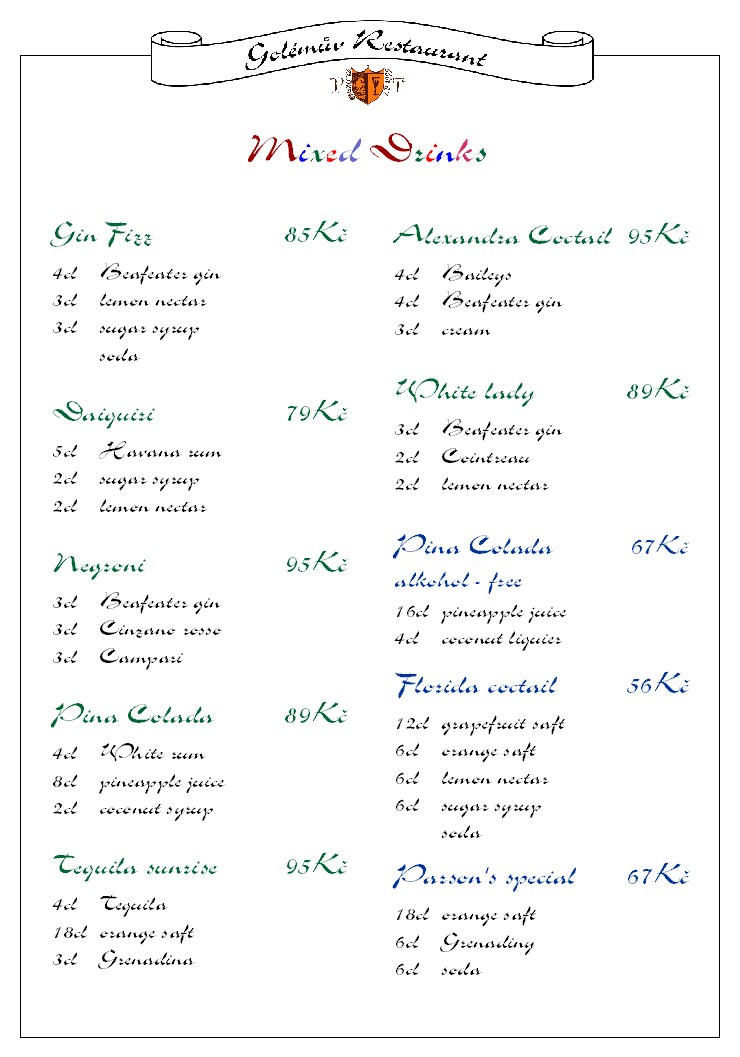 Golémův Restaurant
P T
Mixed Drinks
Gin Fizz 85Kč
4cl Beafeater gin
3cl lemon nectar
3cl sugar syrup
soda
Daiquiri 79Kč
5cl Havana rum
2cl sugar syrup
2cl lemon nectar
Negroni 95Kč
3cl Beafeater gin
3cl Cinzano rosso
3cl Campari
Pina Colada 89Kč
4cl White rum
8cl pineapple juice
2cl coconut syrup
Tequila sunrise 95Kč
4cl Tequila
18cl orange saft
3cl Grenadina
Alexandra Coctail 95Kč
4cl Baileys
4cl Beafeater gin
3cl cream
White lady 89Kč
3cl Beafeater gin
2cl Cointreau
2cl lemon nectar
Pina Colada 67Kč
alkohol - free
16cl pineapple juice
4cl coconut liquier
Florida coctail 56Kč
12cl grapefruit saft
6cl orange saft
6cl lemon nectar
6cl sugar syrup
soda
Parson's special 67Kč
18cl orange saft
6cl Grenadiny
6cl soda